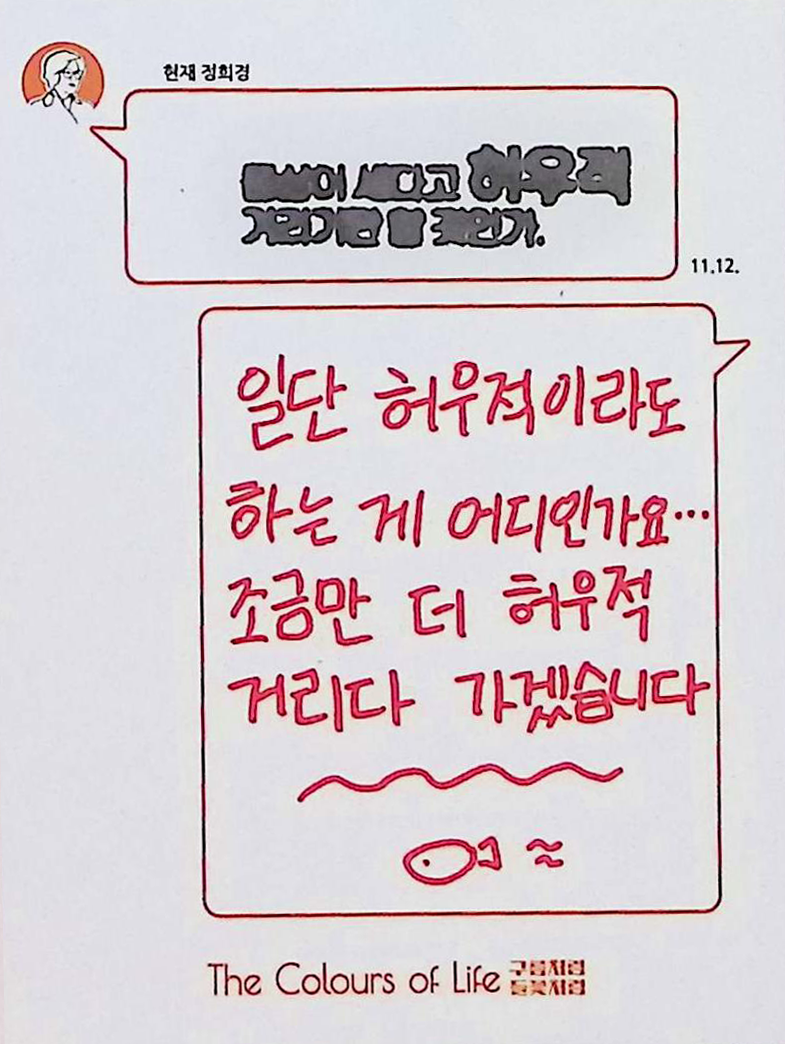 현재 정희경
물살이 세다고 허우적
거리기만 할 것인가.
11.12.
일단 허우적이라도
하는 게 어디인가요…
조금만 더 허우적
거리다 가겠습니다
The Colours of Life 구름처럼
들꽃처럼